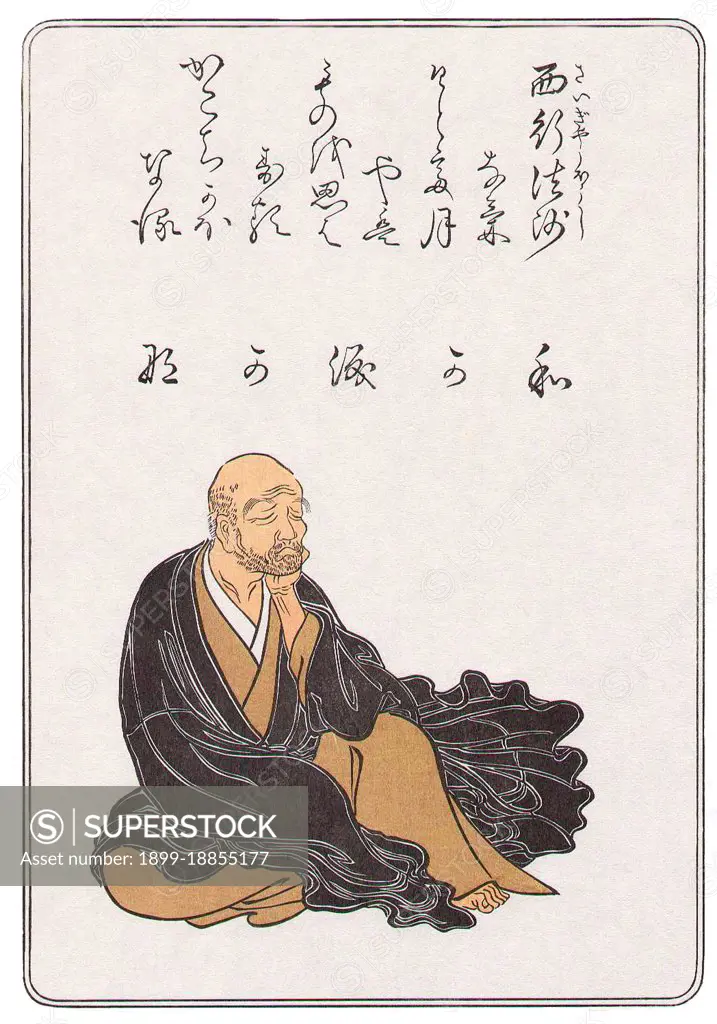 西行法師
さいぎやうほうし
なげ
けとて月
やは
ものを思は
する
かこちかほ
なる
わ か 涙 か な
SUPERSTOCK
Asset number: 1899-18855177